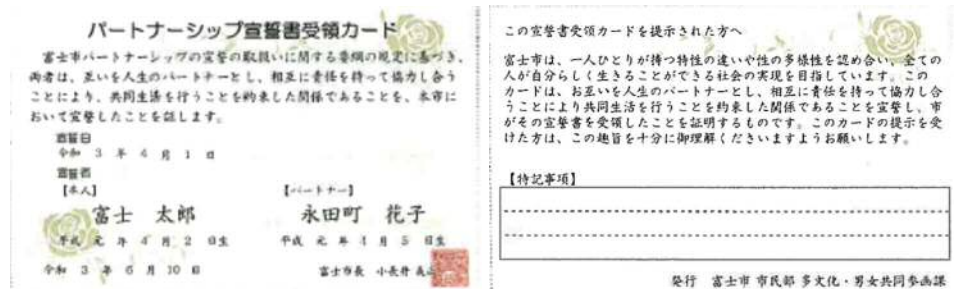 パートナーシップ宣誓書受領カード
富士市パートナーシップの宣誓の取扱いに関する要綱の規定に基づき、
両者は、互いを人生のパートナーとし、相互に責任を持って協力し合う
ことにより、共同生活を行うことを約束した関係であることを、本市に
おいて宣誓したことを証します。
宣誓日
令和 3 年 4 月 1 日
宣誓者
【本人】 【パートナー】
富士 太郎 永田町 花子
平成 元 年 4 月 2 日生 平成 元 年 1 月 5 日生
令和 3 年 6 月 10 日 富士市長 小長井 義
この宣誓書受領カードを提示された方へ
富士市は、一人ひとりが持つ特性の違いや性の多様性を認め合い、全ての
人が自分らしく生きることができる社会の実現を目指しています。この
カードは、お互いを人生のパートナーとし、相互に責任を持って協力し合
うことにより共同生活を行うことを約束した関係であることを宣誓し、市
がその宣誓書を受領したことを証明するものです。このカードの提示を受
けた方は、この趣旨を十分に御理解くださいますようお願いします。
【特記事項】
発行 富士市 市民部 多文化・男女共同参画課